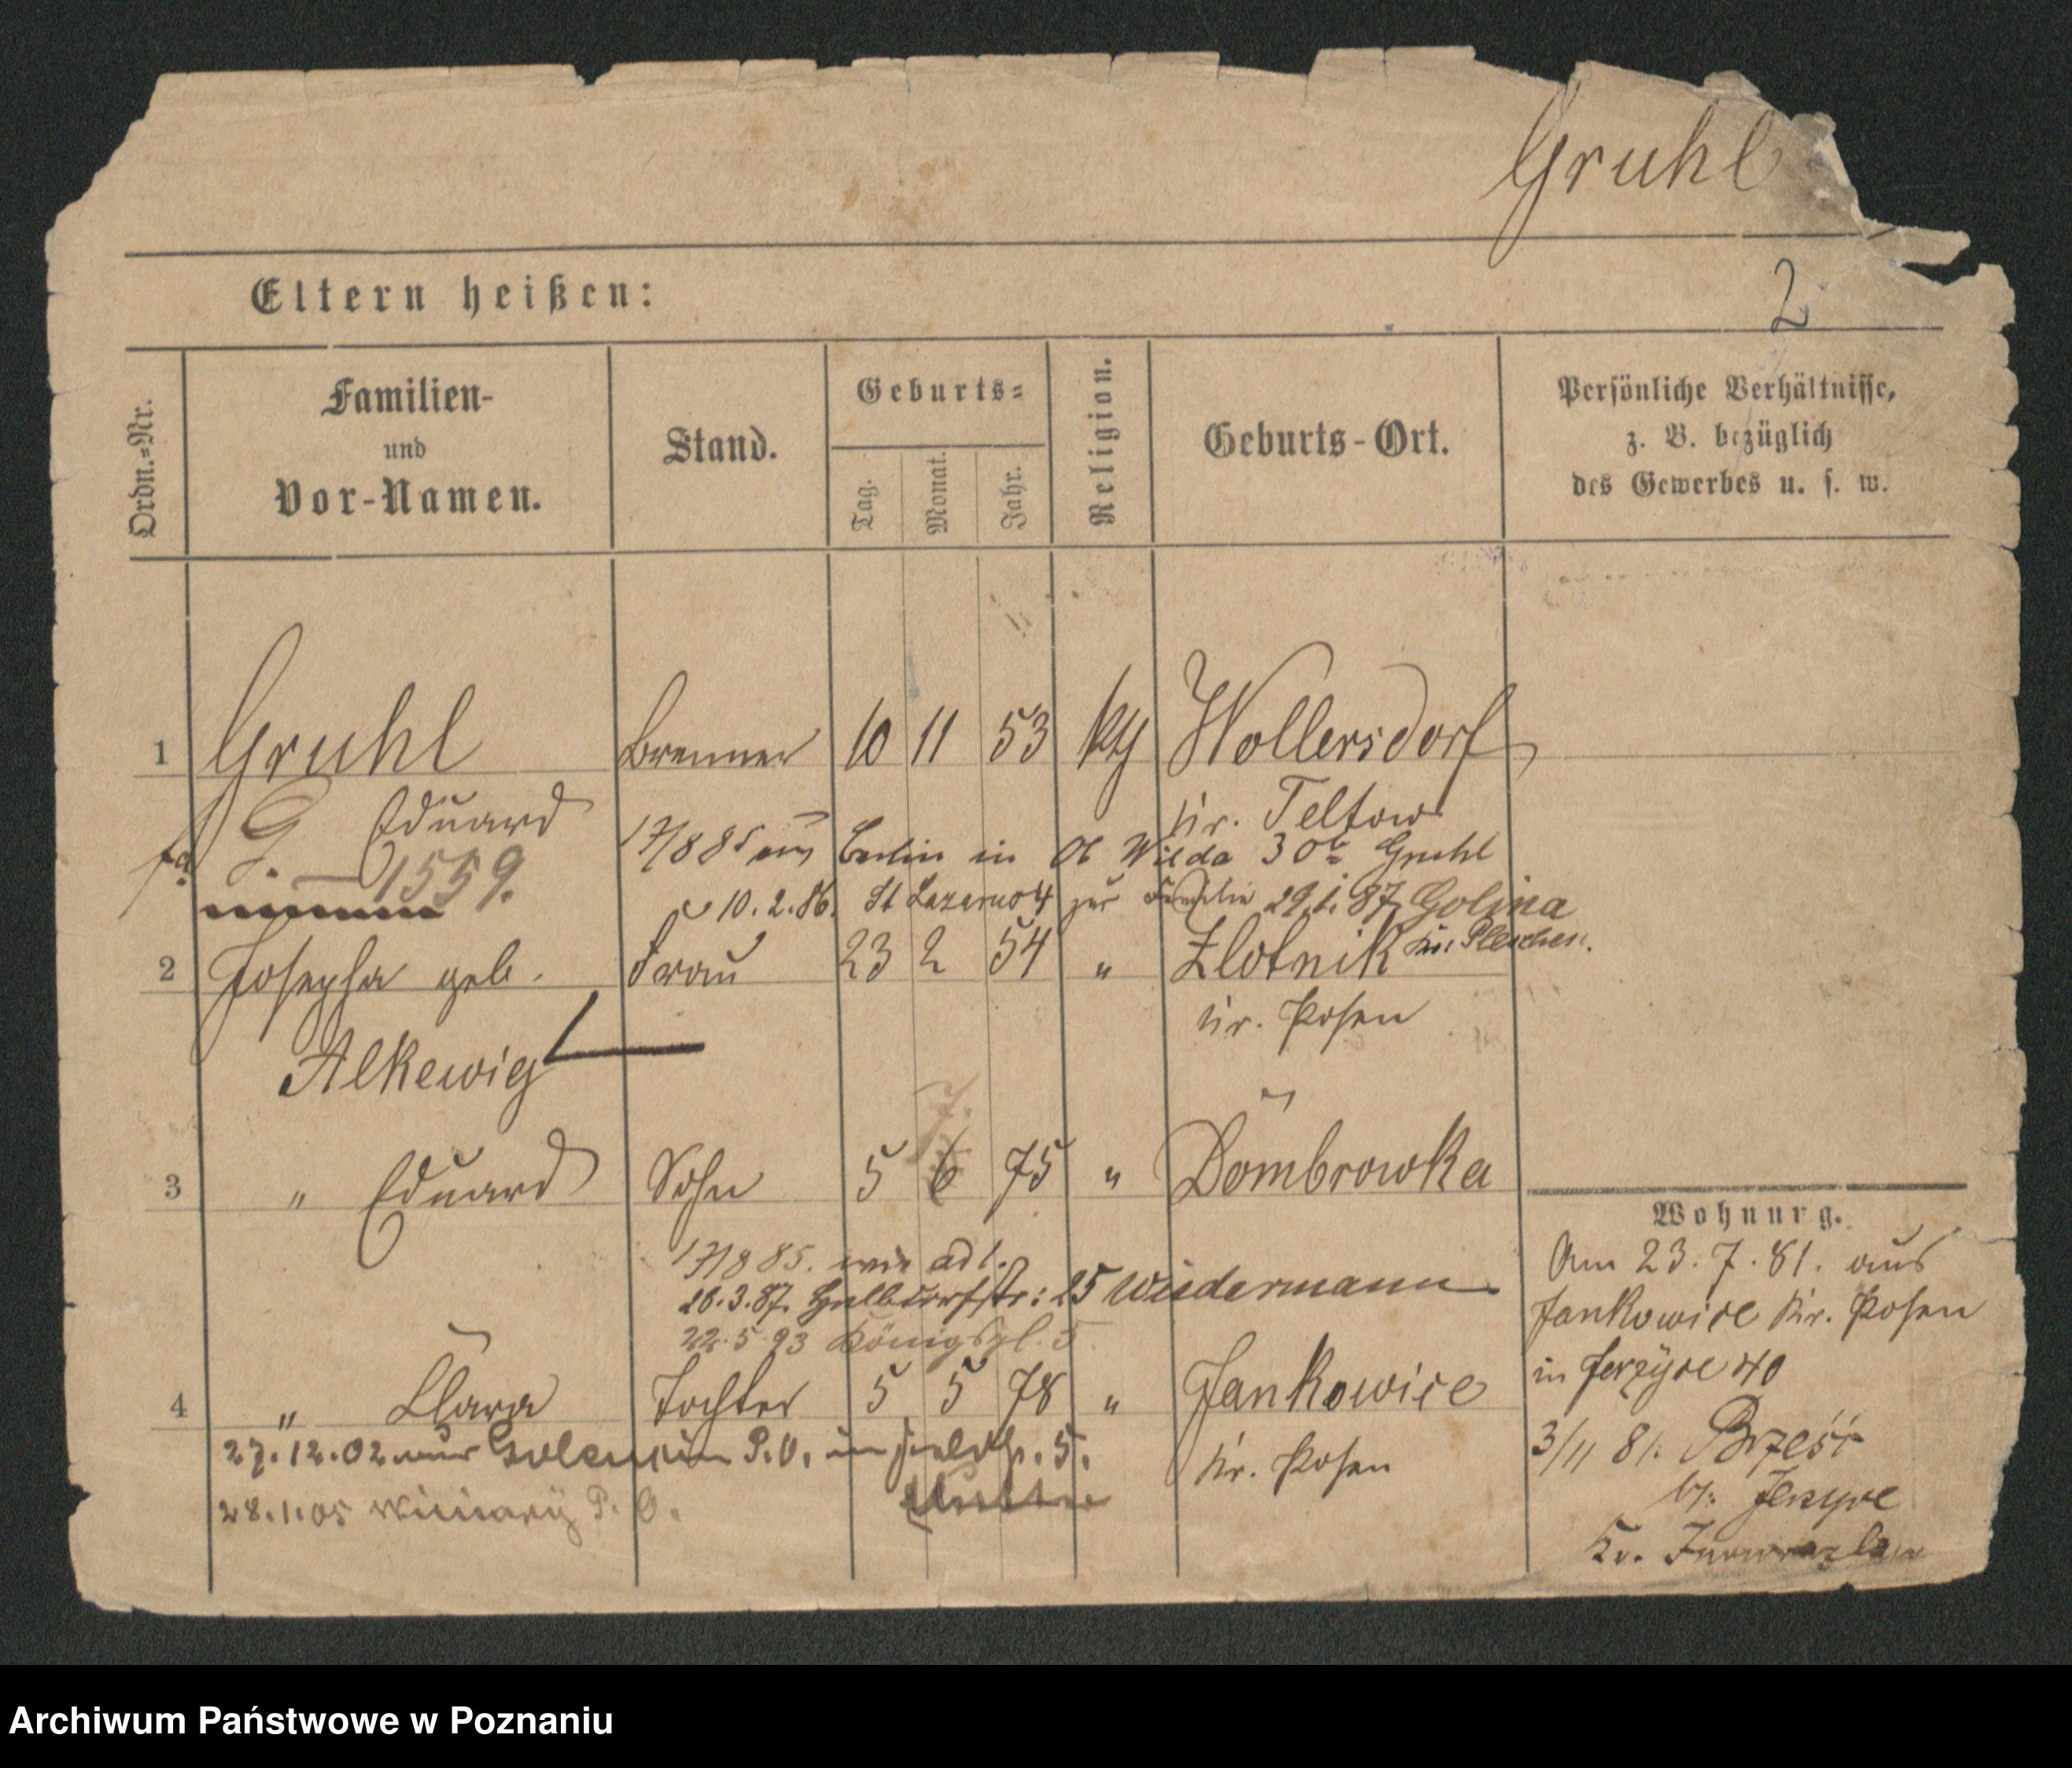 Gruhl
2
Eltern heißen:
Ordn.-Nr.
Familien-
und
Vor-Namen.
Stand.
Geburts-
Tag.
Monat.
Jahr.
Religion.
Geburts-Ort.
Persönliche Verhältnisse,
z. B. bezüglich
des Gewerbes u. s. w.
1 Gruhl Brenner 10 11 53 kth Wollersdorf
Eduard Kr. Teltow
1559.
17/8 85 aus Berlin in Ob Wilda 30b Gruhl
10.2.86. St Lazarus 4 zur Familie 29.1.87 Golina
Kr. Pleschen.
2 Josepha geb. Frau 23 2 54 " Zlotnik
Alkewig Kr. Posen
7.
3 " Eduard Sohn 5 6 75 " Dombrowka
17/8 85. wie ad 1.
26.3.87. Halbdorfstr: 25 Wiedermann
22.5.93 Königspl. 5
4 " Clara Tochter 5 5 78 " Jankowice
Kr. Posen
27.12.02 aus P.O. in 5.
28.1.05 Winiary P. O.
Wohnung.
Am 23.7.81. aus
Jankowice Kr. Posen
in Jerzyce 40
3/11 81. Brześć
Kr. Inowrazlaw
Archiwum Państwowe w Poznaniu